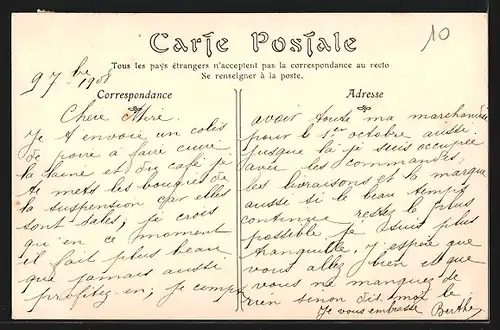 Carte Postale
10
Tous les pays étrangers n'acceptent pas la correspondance au recto
Se renseigner à la poste.
9 7bre 1908
Correspondance
Adresse
Chere Mère.
Je t envoie un colis
de poire à faire cuire
la taure et du café je
te mets les bougies de
la suspension car elles
sont sales; je crois
qu'en ce moment
il fait plus beau
que jamais aussi
profitez en; je compte
avoir toute ma marchandise
pour le 1er octobre aussi
jusque là je suis occupée
avec les commandes,
les livraisons et la marque
aussi si le beau temps
continue restez le plus
possible je suis plus
tranquille. J espère que
vous allez bien et que
vous ne manquez de
rien sinon dis moi le
Je vous embrasse Berthe